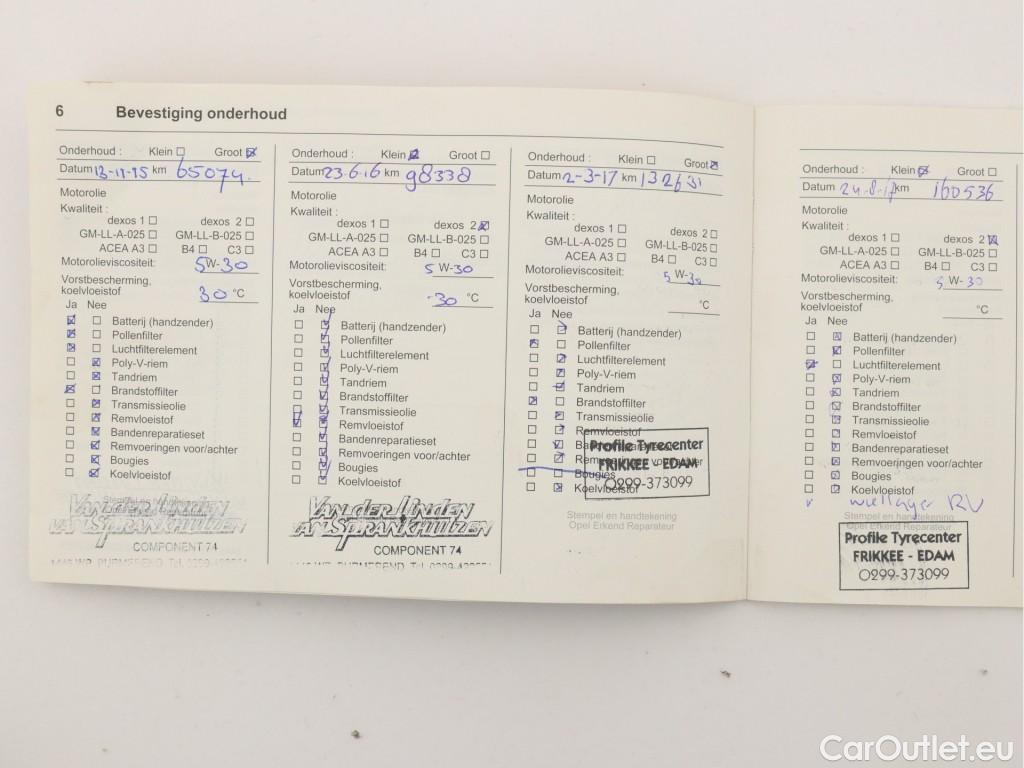 6 Bevestiging onderhoud
Onderhoud : Klein Groot
Datum 13-11-15 km 65074.
Motorolie
Kwaliteit :
dexos 1 dexos 2
GM-LL-A-025 GM-LL-B-025
ACEA A3 B4 C3
Motorolieviscositeit: 5W-30
Vorstbescherming,
koelvloeistof 30 °C
Ja Nee
Batterij (handzender)
Pollenfilter
Luchtfilterelement
Poly-V-riem
Tandriem
Brandstoffilter
Transmissieolie
Remvloeistof
Bandenreparatieset
Remvoeringen voor/achter
Bougies
Koelvloeistof
Stempel en
VAN DER LINDEN
VAN SPRANKHUIZEN
COMPONENT 74
Onderhoud : Klein Groot
Datum 23.6.16 km 98338
Motorolie
Kwaliteit :
dexos 1 dexos 2
GM-LL-A-025 GM-LL-B-025
ACEA A3 B4 C3
Motorolieviscositeit: 5 W-30
Vorstbescherming,
koelvloeistof -30 °C
Ja Nee
Batterij (handzender)
Pollenfilter
Luchtfilterelement
Poly-V-riem
Tandriem
Brandstoffilter
Transmissieolie
Remvloeistof
Bandenreparatieset
Remvoeringen voor/achter
Bougies
Koelvloeistof
VAN DER LINDEN
VAN SPRANKHUIZEN
COMPONENT 74
PURMEREND Tel.
Onderhoud : Klein Groot
Datum 2-3-17 km
Motorolie
Kwaliteit :
dexos 1 dexos 2
GM-LL-A-025 GM-LL-B-025
ACEA A3 B4 C3
Motorolieviscositeit: 5 W-30
Vorstbescherming,
koelvloeistof °C
Ja Nee
Batterij (handzender)
Pollenfilter
Luchtfilterelement
Poly-V-riem
Tandriem
Brandstoffilter
Transmissieolie
Remvloeistof
Remvoeringen voor/achter
Bougies
Koelvloeistof
Profile Tyrecenter
FRIKKEE - EDAM
0299-373099
Stempel en handtekening
Opel Erkend Reparateur
Onderhoud : Klein Groot
Datum 24-8-17 km 160536
Motorolie
Kwaliteit :
dexos 1 dexos 2
GM-LL-A-025 GM-LL-B-025
ACEA A3 B4 C3
Motorolieviscositeit: 5 W-30
Vorstbescherming,
koelvloeistof °C
Ja Nee
Batterij (handzender)
Pollenfilter
Luchtfilterelement
Poly-V-riem
Tandriem
Brandstoffilter
Transmissieolie
Remvloeistof
Bandenreparatieset
Remvoeringen voor/achter
Bougies
Koelvloeistof
wiellager RV
Stempel en handtekening
Opel Erkend Reparateur
Profile Tyrecenter
FRIKKEE - EDAM
0299-373099
CarOutlet.eu